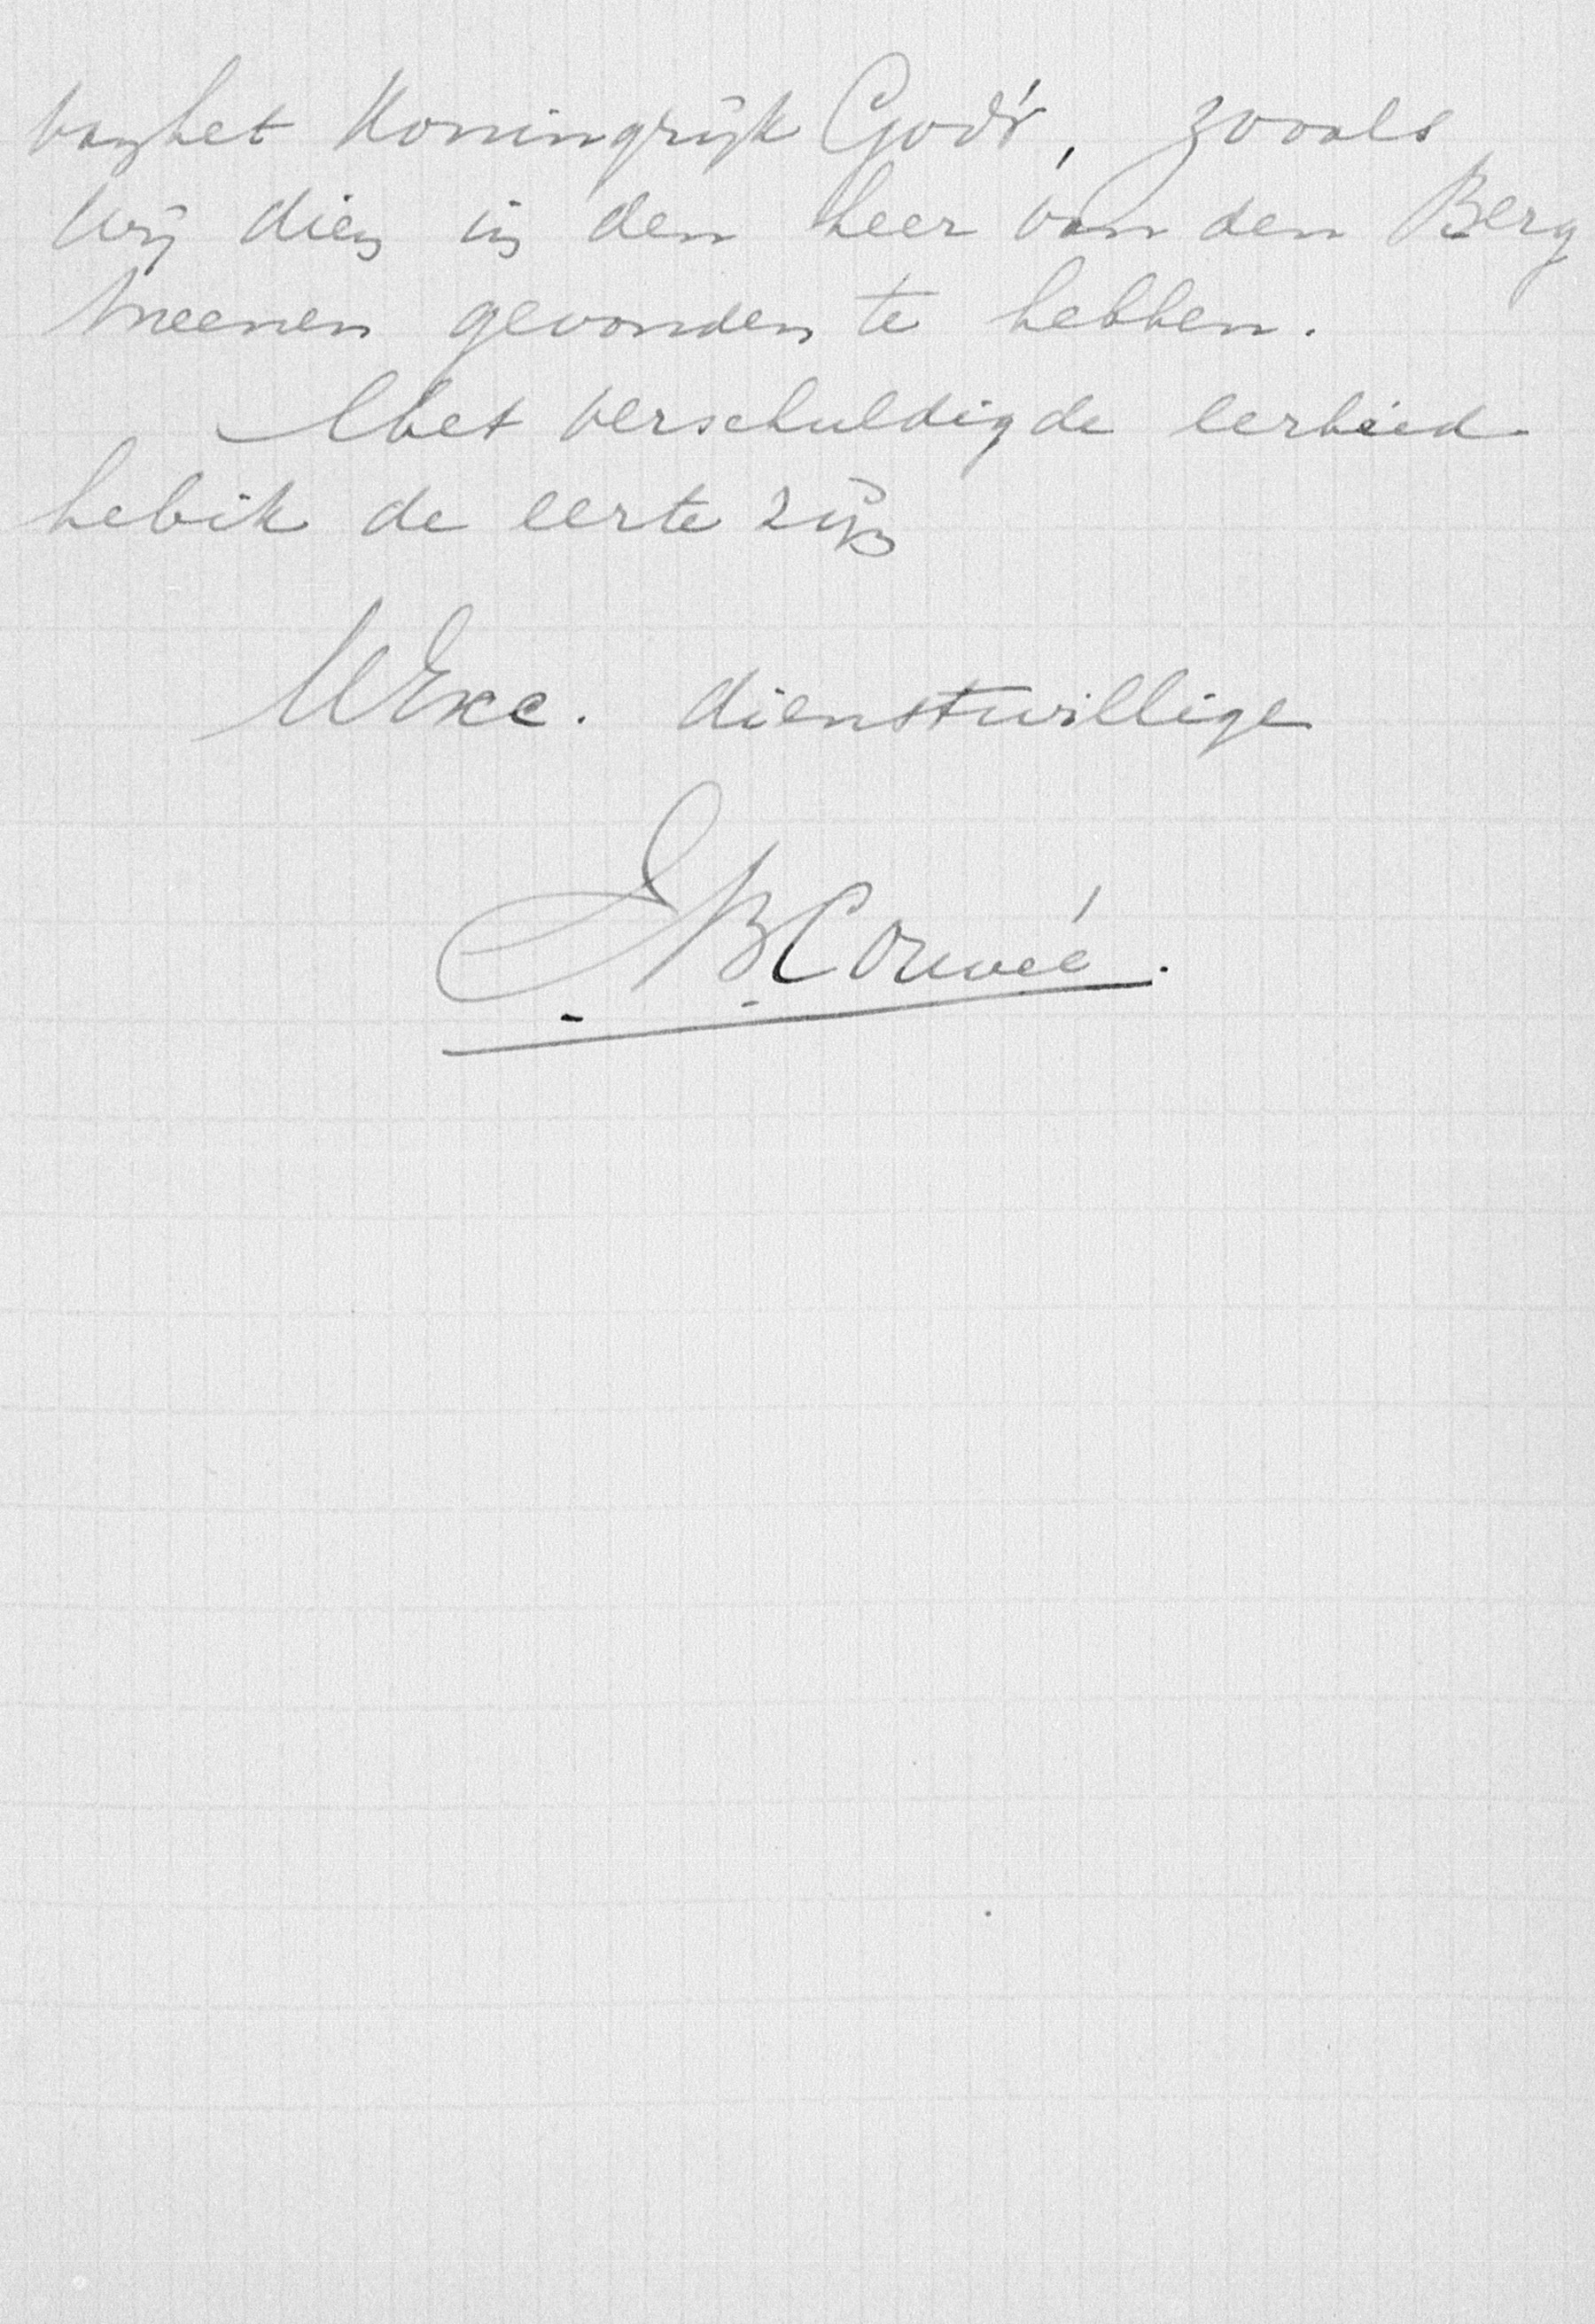 van het Koningrijk God's, zooals
wij dien in den heer van den Berg
meenen gevonden te hebben.
Met verschuldigde eerbied
heb ik de eer te zijn
UwExc. dienstwillige
J B Couvée.